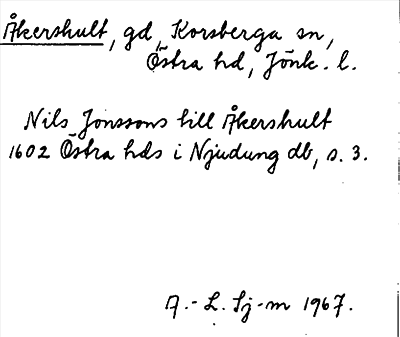 Åkershult, gd, Korsberga sn,
Östra hd, Jönk. l.
Nils Jonssons till Åkershult
1602 Östra hds i Njudung db, s. 3.
A.-L. Sj-m 1967.